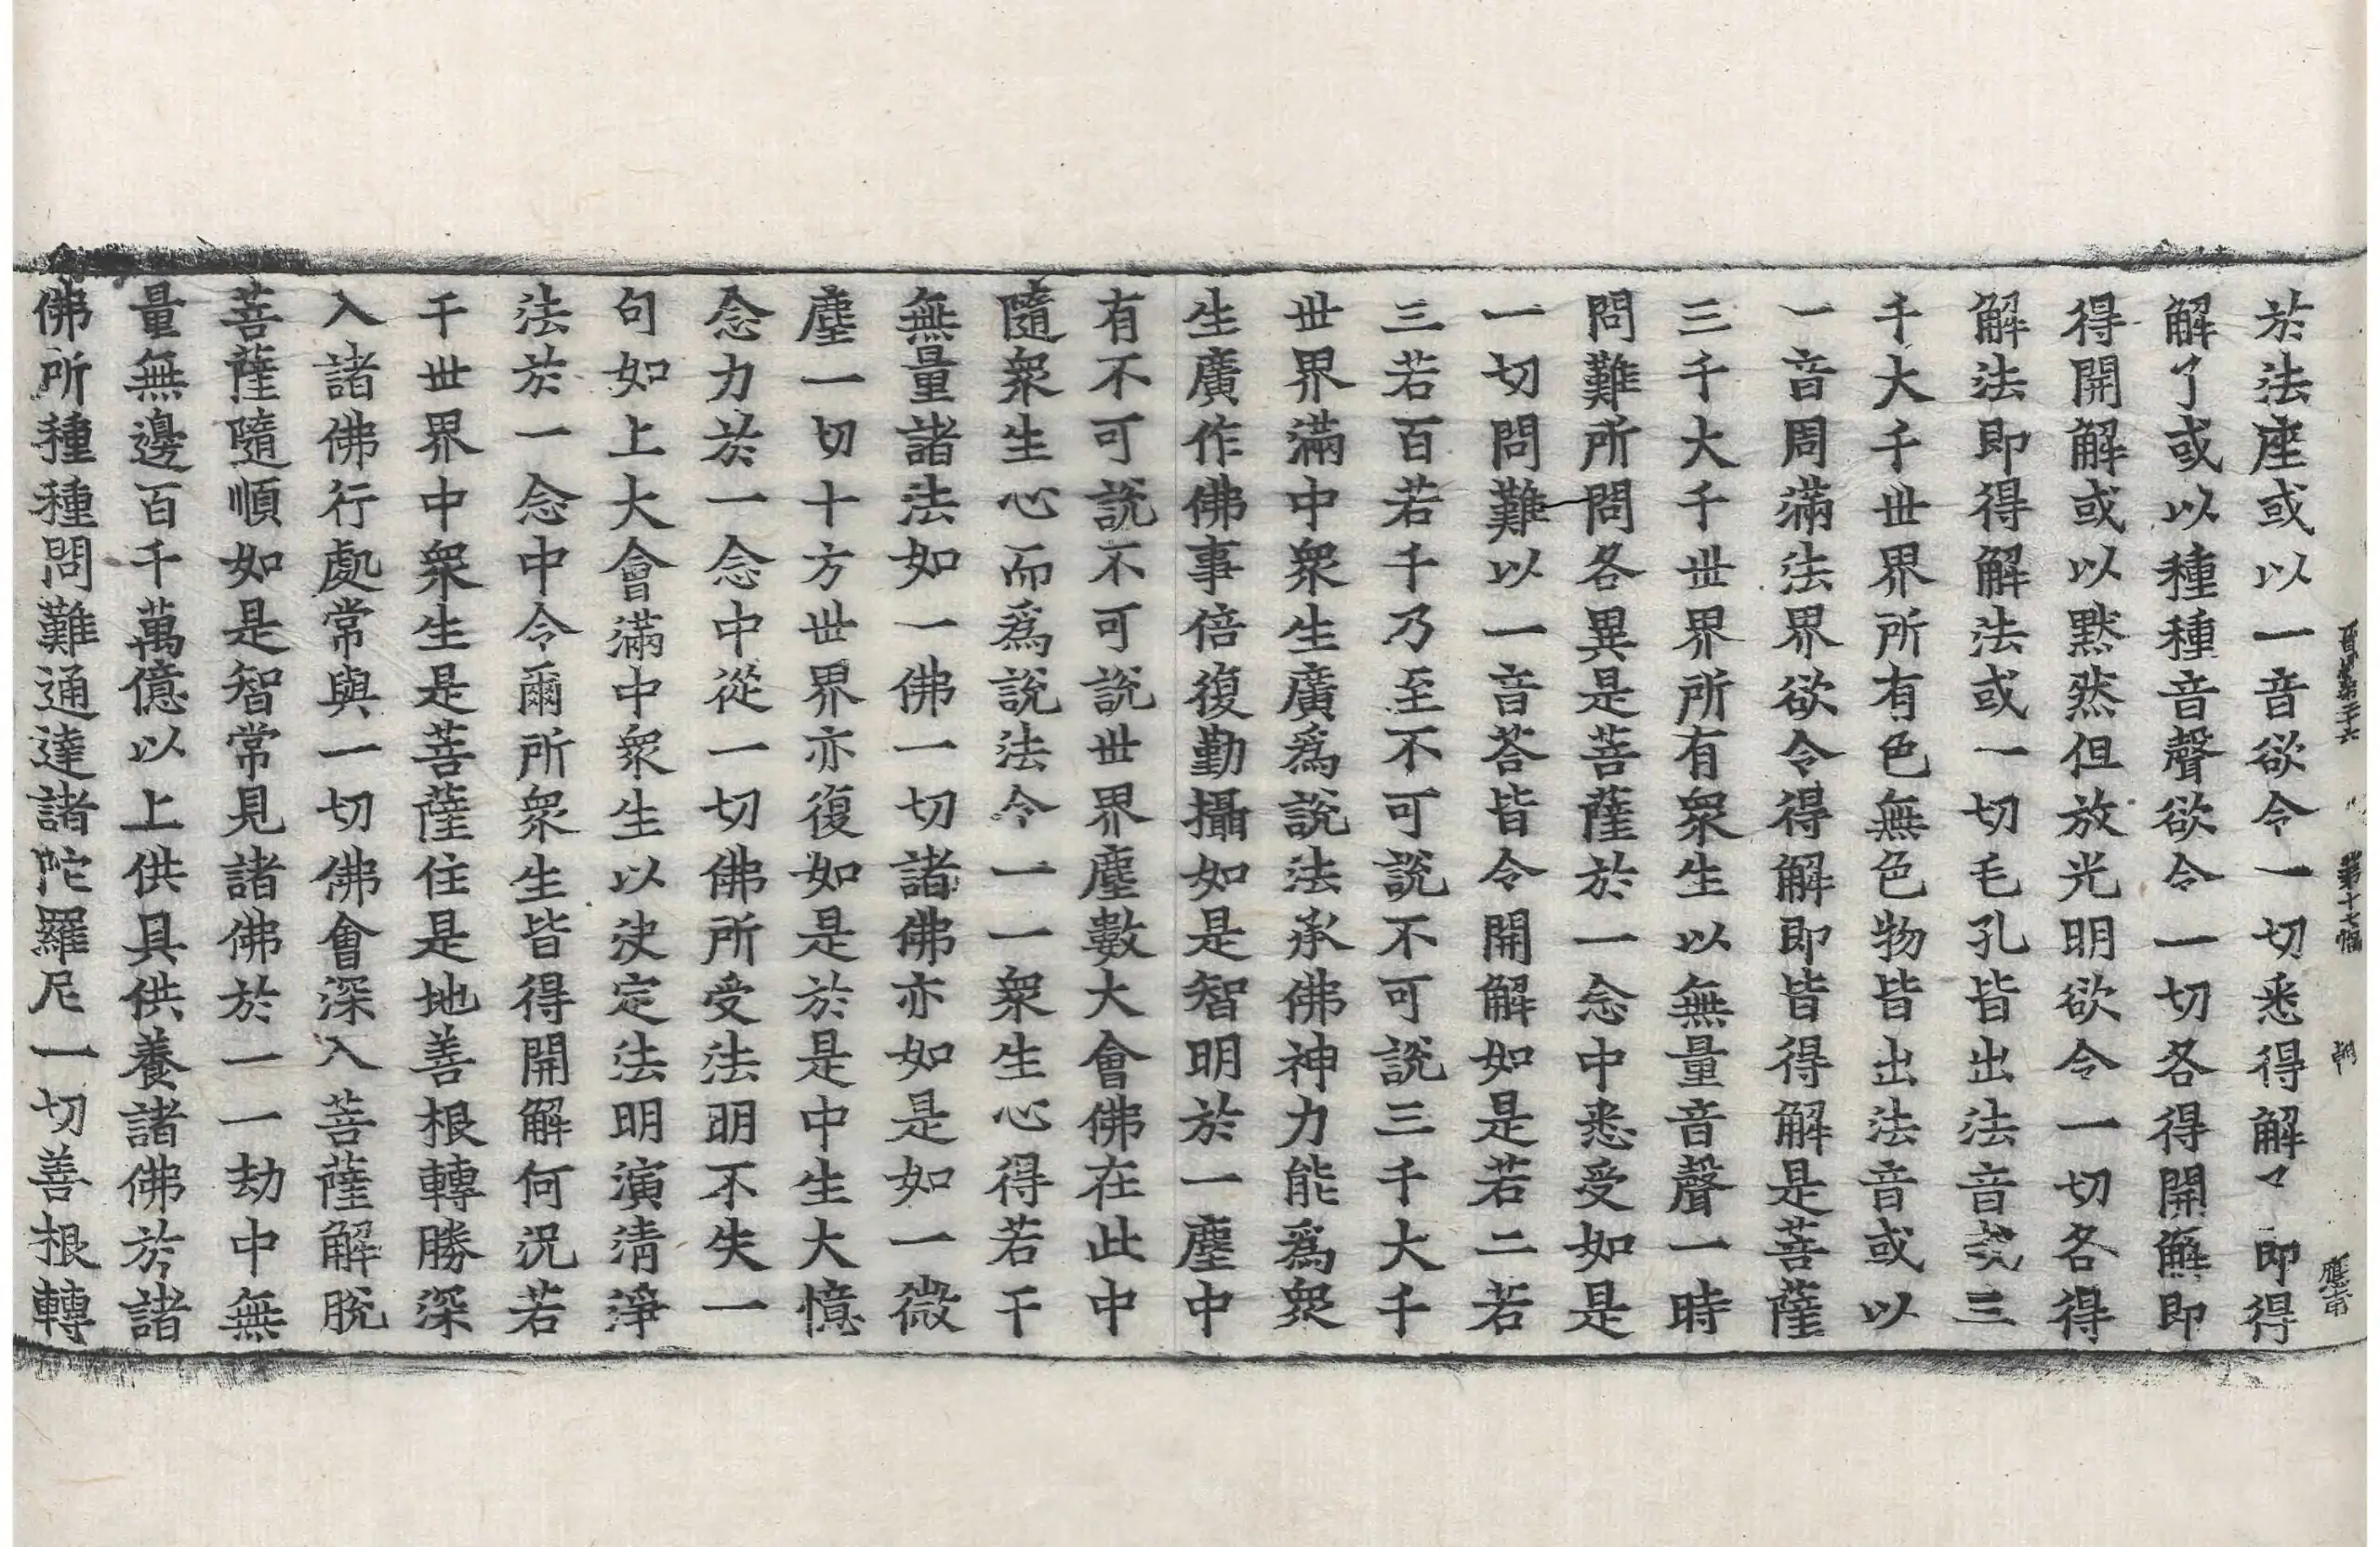 於法座或以一音欲令一切悉得解〻即得
解了或以種種音聲欲令一切各得開解即
得開解或以黙然但放光明欲令一切各得
解法即得解法或一切毛孔皆出法音或三
千大千世界所有色無色物皆出法音或以
一音周滿法界欲令得解即皆得解是菩薩
三千大千世界所有衆生以無量音聲一時
問難所問各異是菩薩於一念中悉受如是
一切問難以一音荅皆令開解如是若二若
三若百若千乃至不可説不可説三千大千
世界滿中衆生廣爲説法承佛神力能爲衆
生廣作佛事倍復勤攝如是智明於一塵中
有不可説不可説世界塵數大會佛在此中
隨衆生心而爲説法令一一衆生心得若干
無量諸法如一佛一切諸佛亦如是如一微
塵一切十方世界亦復如是於是中生大憶
念力於一念中從一切佛所受法明不失一
句如上大會滿中衆生以決定法明演清淨
法於一念中令爾所衆生皆得開解何況若
千世界中衆生是菩薩住是地善根轉勝深
入諸佛行處常與一切佛會深入菩薩解脫
菩薩隨順如是智常見諸佛於一一劫中無
量無邊百千萬億以上供具供養諸佛於諸
佛所種種問難通達諸陀羅尼一切善根轉